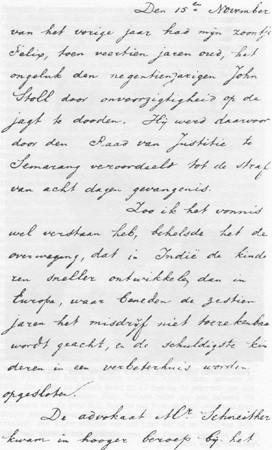 Den 15en November
van het vorige jaar had mijn zoontje
Felix, toen veertien jaren oud, het
ongeluk den negentienjarigen John
Stoll door onvoorzigtigheid op de
jagt te dooden. Hij werd daarvoor
door den Raad van Justitie te
Semarang veroordeelt tot de straf
van acht dagen gevangenis.
Zoo ik het vonnis
wel verstaan heb, behelsde het de
overweging, dat in Indië de kinde
ren sneller ontwikkelen dan in
Europa, waar beneden de zestien
jaren het misdrijf niet toerekenbaar
wordt geacht, en de schuldigste kin
deren in een verbeterhuis worden
opgesloten.
De advokaat Mr. Schneither
kwam in hooger beroep bij het